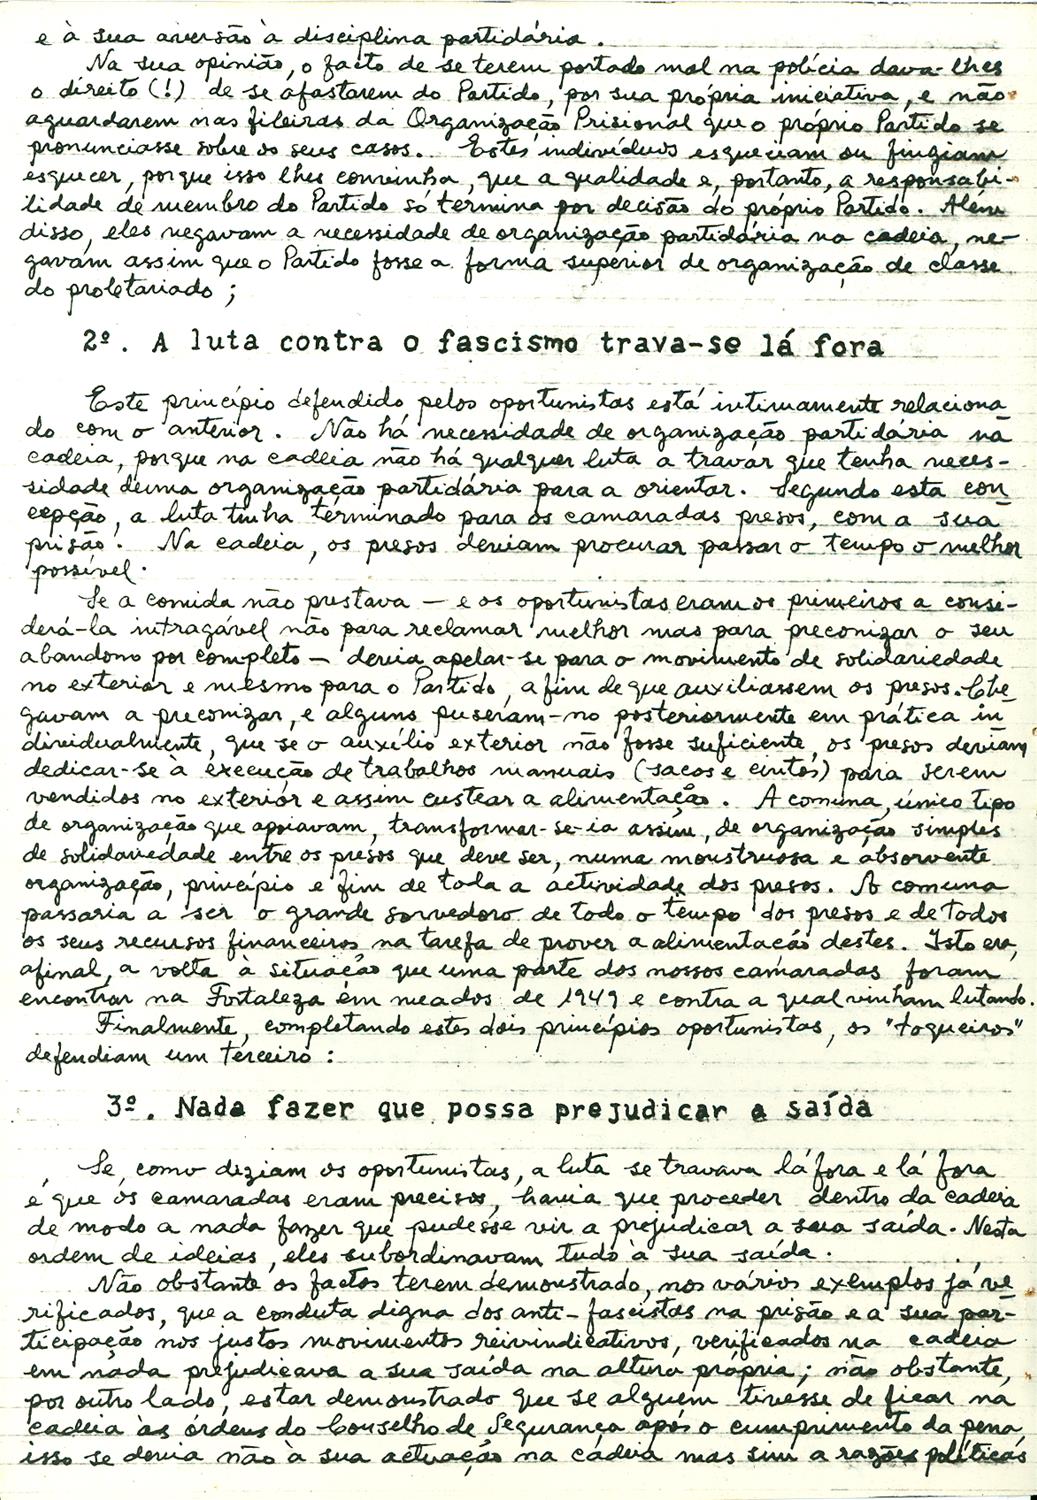 e à sua aversão à disciplina partidária.
Na sua opinião, o facto de se terem portado mal na polícia dava-lhes
o direito (!) de se afastarem do Partido, por sua própria iniciativa, e não
aguardarem nas fileiras da Organização Prisional que o próprio Partido se
pronunciasse sobre os seus casos. Estes indivíduos esqueciam ou fingiam
esquecer, porque isso lhes convinha, que a qualidade e, portanto, a responsabi-
lidade de membro do Partido só termina por decisão do próprio Partido. Alem
disso, eles negavam a necessidade de organização partidária na cadeia, ne-
gavam assim que o Partido fosse a forma superior de organização de classe
do proletariado;
2º. A luta contra o fascismo trava-se lá fora
Este princípio defendido pelos oportunistas está intimamente relaciona
do com o anterior. Não há necessidade de organização partidária na
cadeia, porque na cadeia não há qualquer luta a travar que tenha neces-
sidade duma organização partidária para a orientar. Segundo esta con
cepção, a luta tinha terminado para os camaradas presos, com a sua
prisão. Na cadeia, os presos deviam procurar passar o tempo o melhor
possível.
Se a comida não prestava — e os oportunistas eram os primeiros a consi-
derá-la intragável não para reclamar melhor mas para preconizar o seu
abandono por completo — devia apelar-se para o movimento de solidariedade
no exterior e mesmo para o Partido, a fim de que auxiliassem os presos. Che
gavam a preconizar, e alguns puseram-no posteriormente em prática in
dividualmente, que se o auxílio exterior não fosse suficiente, os presos deviam
dedicar-se à execução de trabalhos manuais (sacos e cintos) para serem
vendidos no exterior e assim custear a alimentação. A comuna, único tipo
de organização que apoiavam, transformar-se-ia assim, de organização simples
de solidariedade entre os presos que deve ser, numa monstruosa e absorvente
organização, princípio e fim de toda a actividade dos presos. A comuna
passaria a ser o grande sorvedoro de todo o tempo dos presos e de todos
os seus recursos financeiros na tarefa de prover a alimentação destes. Isto era,
afinal, a volta à situação que uma parte dos nossos camaradas foram
encontrar na Fortaleza em meados de 1949 e contra a qual vinham lutando.
Finalmente, completando estes dois princípios oportunistas, os "toqueiros"
defendiam um terceiro:
3º. Nada fazer que possa prejudicar a saída
Se, como diziam os oportunistas, a luta se travava lá fora e lá fora
é que os camaradas eram precisos, havia que proceder dentro da cadeia
de modo a nada fazer que pudesse vir a prejudicar a sua saída. Nesta
ordem de ideias, eles subordinavam tudo à sua saída.
Não obstante os factos terem demonstrado, nos vários exemplos já ve
rificados, que a conduta digna dos anti-fascistas na prisão e a sua par-
ticipação nos justos movimentos reivindicativos, verificados na cadeia
em nada prejudicava a sua saída na altura própria; não obstante,
por outro lado, estar demonstrado que se alguem tivesse de ficar na
cadeia às órdens do Conselho de Segurança após o cumprimento da pena,
isso se devia não à sua actuação na cadeia mas sim a razões políticas